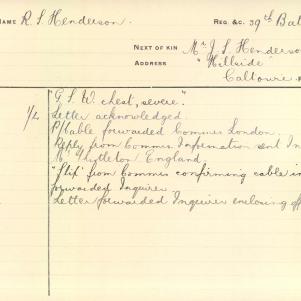 NAME R. S. Henderson. REG. &C. 39th Bat
NEXT OF KIN Mr J. S. Henderson
ADDRESS "Hillside"
1/4 "G. S. W. chest, severe".
Letter acknowledged.
P/Cable forwarded Commns London.
Reply from Commns Information sent In
England.
"Slip" from Commns confirming cable in
forwarded Inquirer
Letter forwarded Inquirer enclosing off